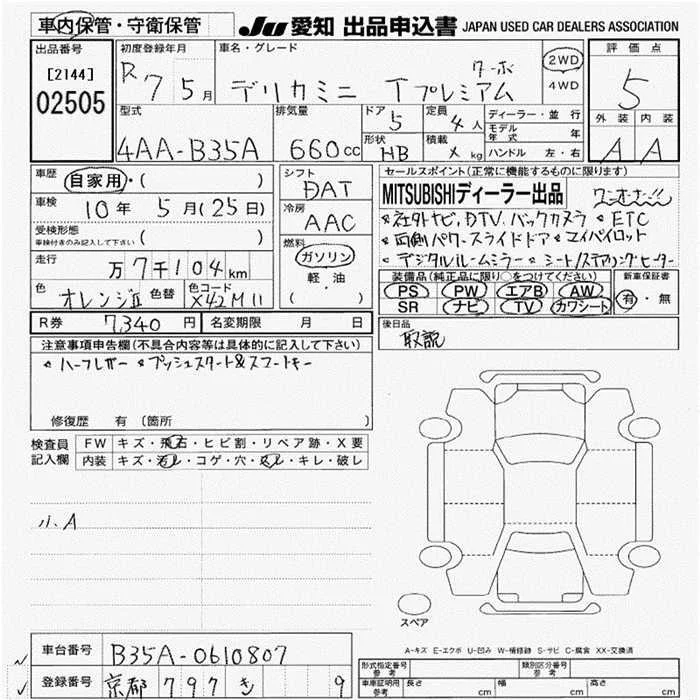 車内保管・守衛保管 JU 愛知 出品申込書 JAPAN USED CAR DEALERS ASSOCIATION
出品番号 初度登録年月 車名・グレード 評価点
[2144] R7 5月 デリカミニ Tプレミアム ターボ 2WD 5
02505 4WD
型式 排気量 ドア 5 定員 4人 ディーラー・並行 外装 内装
モデル年式 年
4AA-B35A 660cc 形状 HB 積載 x kg ハンドル 左・右 A A
車歴 自家用・( ) シフト DAT セールスポイント(正常に機能するものに限ります)
車検 10年 5月(25日) 冷房 AAC MITSUBISHIディーラー出品 ワンオーナー!!
受検形態 ( ) 社外ナビ,DTV.バックカメラ ETC
車検付きのみ記入して下さい 燃料 ガソリン 両側パワースライドドア マイパイロット
走行 万7千104km 軽・油 デジタルルームミラー シート/ステアリングヒーター
( ) 装備品(純正品に限り○をつけてください) 新車保証書
色 オレンジII 色替 色コード X42M11 PS PW エアB AW 有・無
SR ナビ TV カワシート
R券 7,340円 名変期限 月 日 後日品
取説
注意事項申告欄(不具合内容等は具体的に記入して下さい)
ハーフレザー プッシュスタート&スマートキー
修復歴 有 (箇所 )
検査員記入欄 FW キズ・飛石・ヒビ割・リペア跡・X要
内装 キズ・汚レ・コゲ・穴・スレ・キレ・破レ
小.A
スペア
A-キズ E-エクボ U-凹み W-補修跡 S-サビ C-腐食 XX-交換済
車台番号 B35A-0610807
型式指定番号 参考 類別区分番号 参考
登録番号 京都 797 き 9
車庫証明用 参考 長さ cm 幅 cm 高さ cm